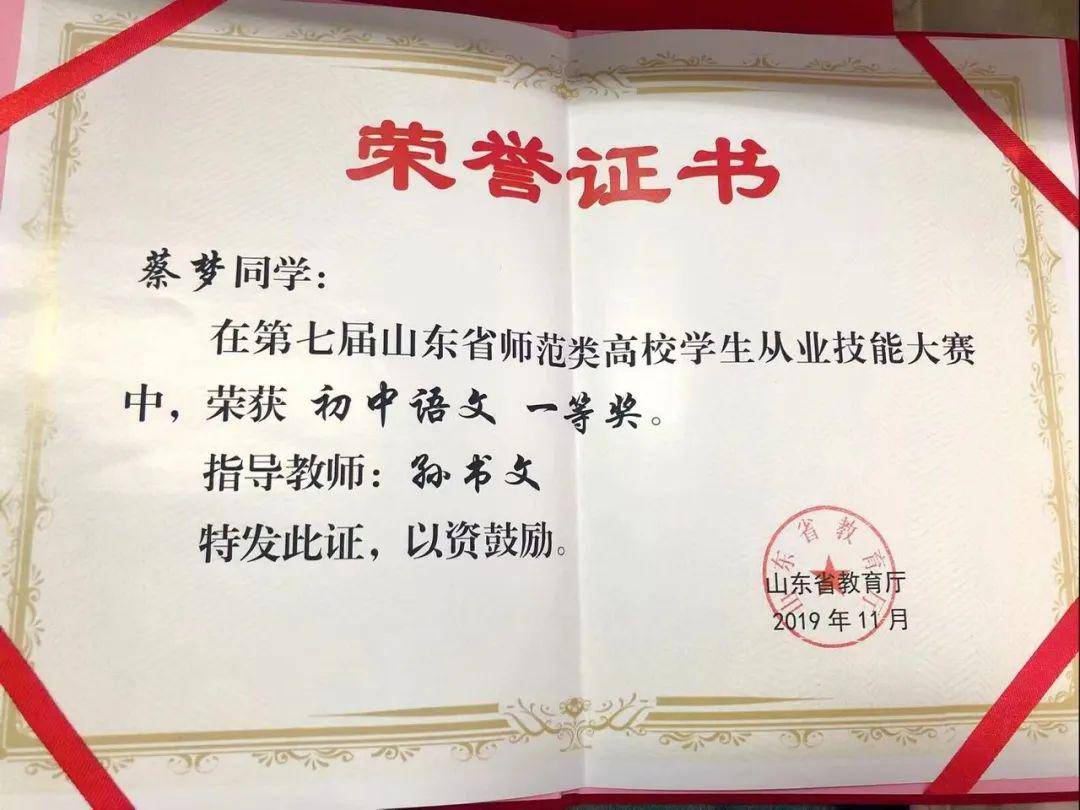 荣誉证书
蔡梦同学：
在第七届山东省师范类高校学生从业技能大赛
中，荣获 初中语文 一等奖。
指导教师：孙书文
特发此证，以资鼓励。
山东省教育厅
山东省教育厅
2019 年 11 月